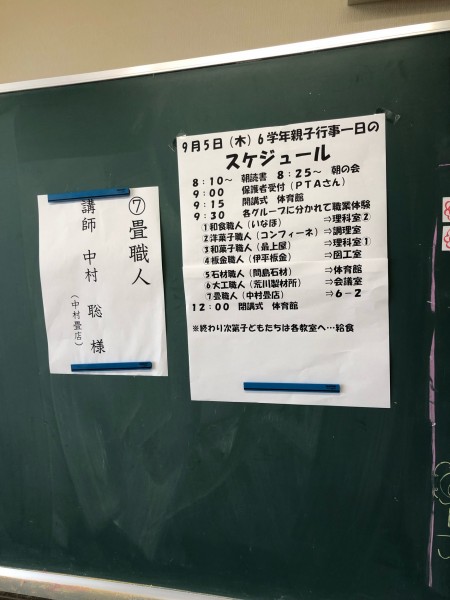 9月5日(木)6学年親子行事一日の
スケジュール
8:10〜 朝読書 8:25〜 朝の会
9:00 保護者受付(PTAさん)
9:15 開講式 体育館
9:30 各グループに分かれて職業体験
①和食職人(いなほ) ⇒理科室②
②洋菓子職人(コンフィーネ)⇒調理室
③和菓子職人(最上屋) ⇒理科室1
④板金職人(伊平板金) ⇒図工室
⑤石材職人(間島石材) ⇒体育館
⑥大工職人(荒川製材所) ⇒会議室
⑦畳職人(中村畳店) ⇒6-2
12:00 閉講式 体育館
※終わり次第子どもたちは各教室へ…給食
⑦畳職人
講師 中村 聡 様
(中村畳店)